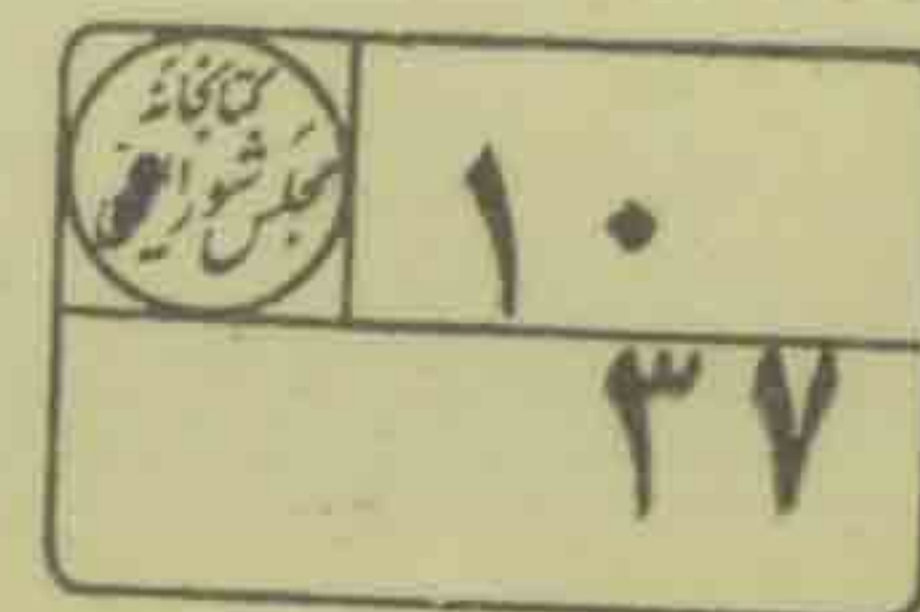 کتابخانهٔ
مجلس شورای
۱۰
۳۷